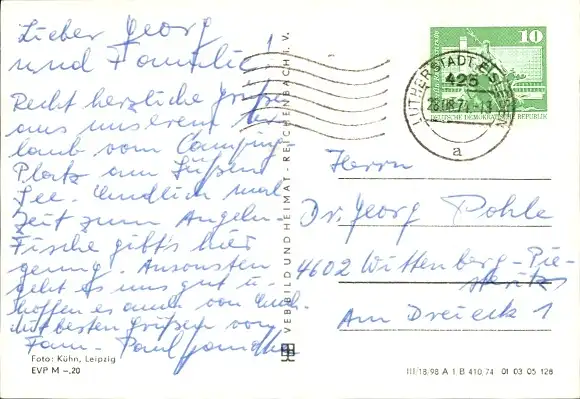 Lieber Georg
und Familie!
Recht herzliche Grüße
aus unserem Ur-
laub vom Camping-
Platz am Süßen
See. Endlich mal
Zeit zum Angeln
Fische gibt's hier
genug. Ansonsten
geht es uns gut u.
hoffen es auch von Euch.
Mit besten Grüßen von
Fam. Paul
Foto: Kühn, Leipzig
EVP M –,20
VEB BILD UND HEIMAT · REICHENBACH I. V.
10
DEUTSCHE DEMOKRATISCHE REPUBLIK
LUTHERSTADT EISLEBEN
425
a
Herrn
Dr. Georg Pohle
4602 Wittenberg-Pie-
steritz
Am Dreieck 1
III/18/98 A 1/B 410/74 01 03 05 128